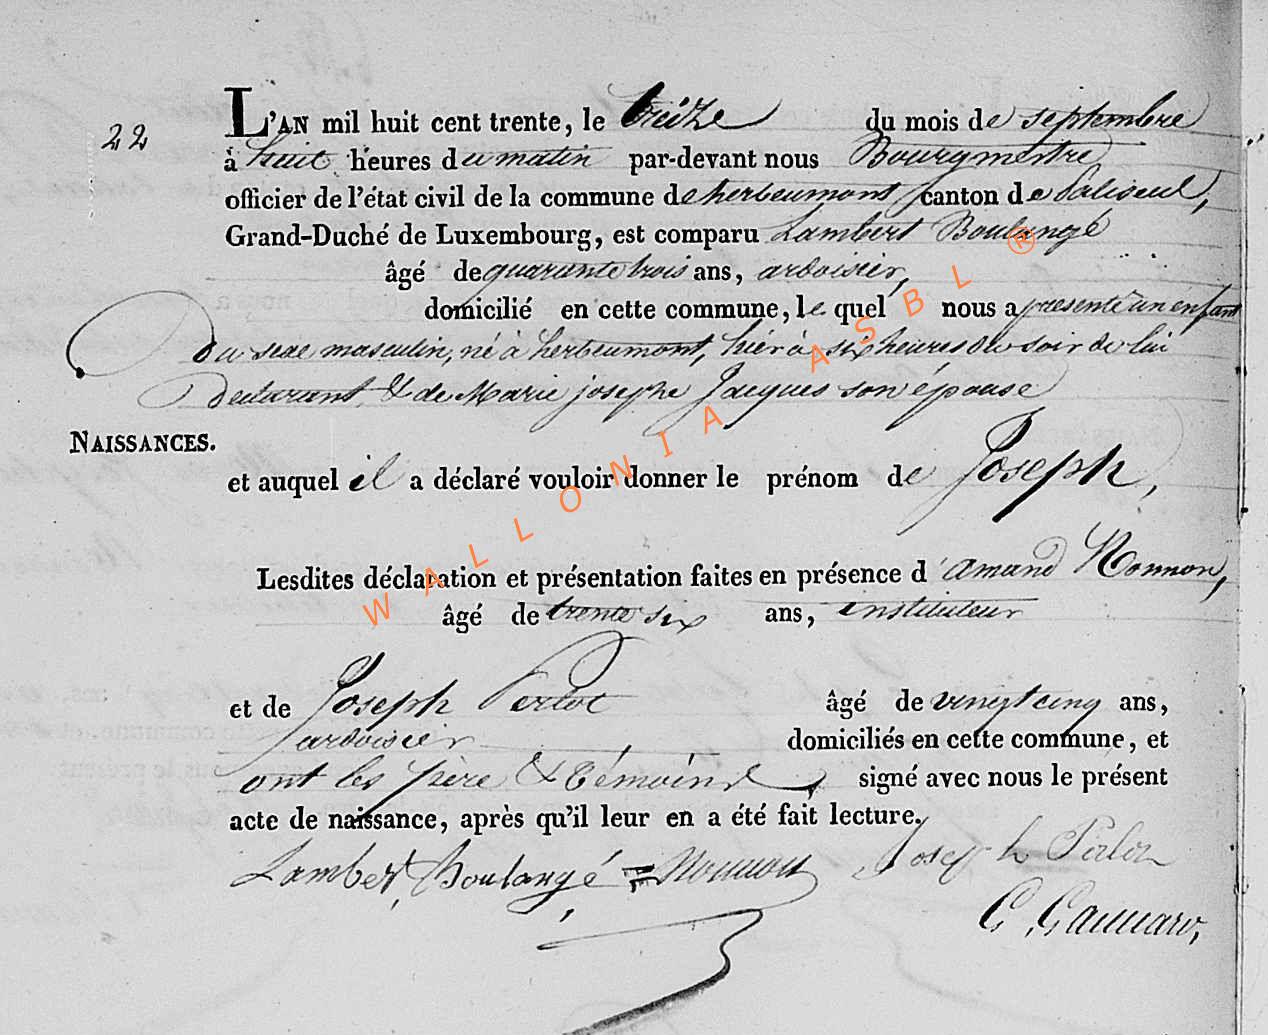 22
L'AN mil huit cent trente, le treize du mois de septembre
à huit heures du matin par-devant nous Bourgmestre,
officier de l'état civil de la commune de herbeumont, canton de Paliseul,
Grand-Duché de Luxembourg, est comparu Lambert Boulangé
âgé de quarante trois ans, ardoisier,
domicilié en cette commune, le quel nous a présenté un enfant
Du sexe masculin, né à herbeumont, hier à six heures du soir de lui
Déclarant & de Marie josephe Jacques son épouse
NAISSANCES.
et auquel il a déclaré vouloir donner le prénom de Joseph,
Lesdites déclaration et présentation faites en présence d'amand Nonnon,
âgé de trente six ans, instituteur
et de Joseph Perlot âgé de vingt cinq ans,
ardoisier domiciliés en cette commune, et
ont les père & témoins, signé avec nous le présent
acte de naissance, après qu'il leur en a été fait lecture.
Lambert Boulangé Nonnon Joseph Perlot
WALLONIA ASBL ®